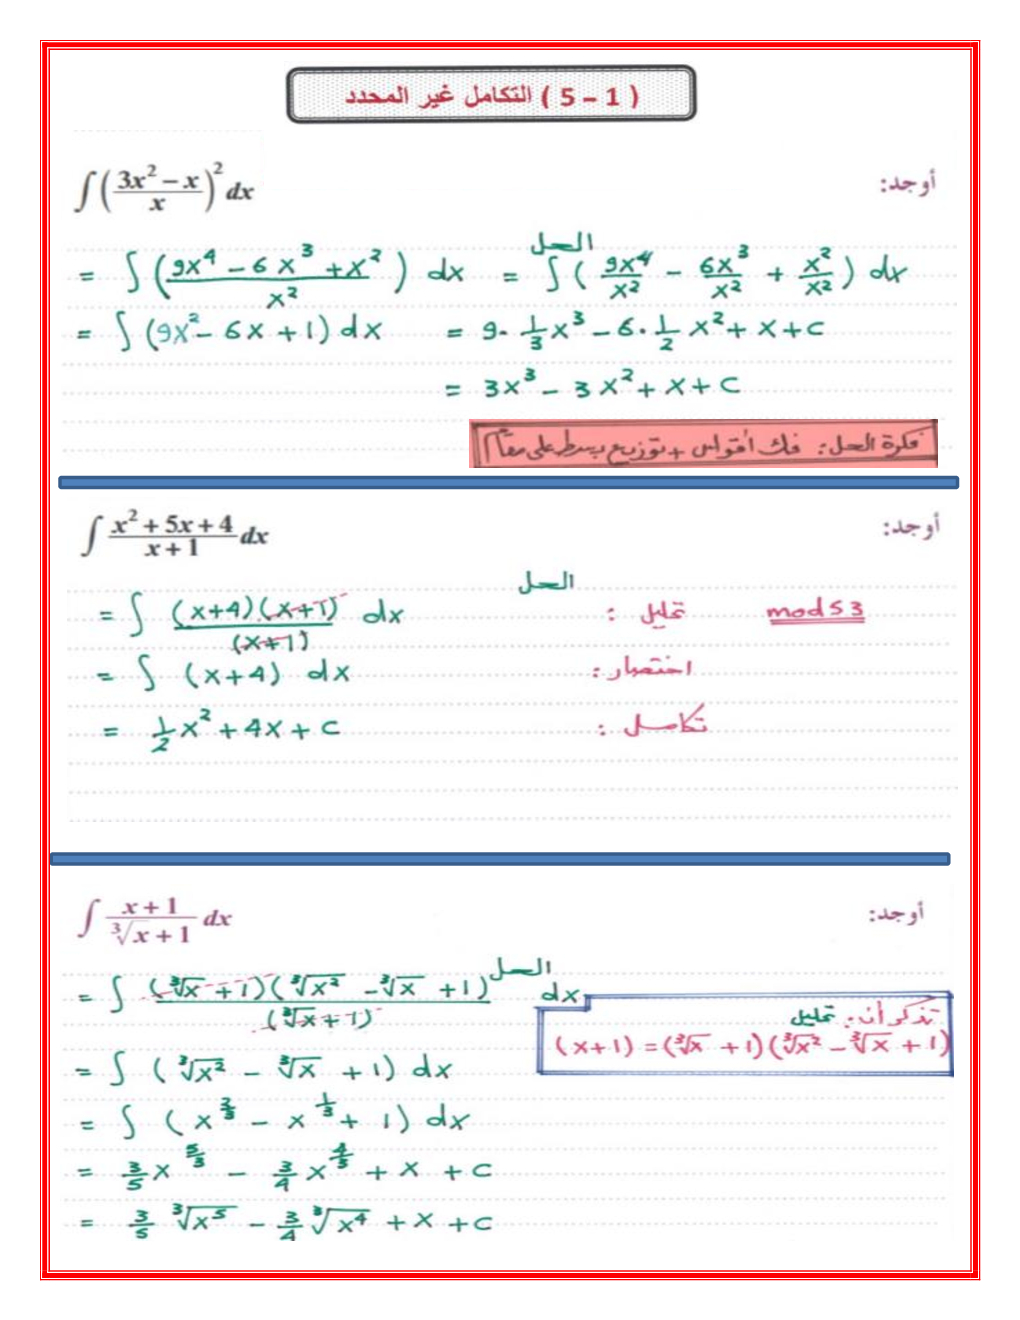 ( 5 – 1 ) التكامل غير المحدد
أوجد: ∫ ( (3x² − x) / x )² dx
الحل
= ∫ ( (9x⁴ − 6x³ + x²) / x² ) dx = ∫ ( 9x⁴/x² − 6x³/x² + x²/x² ) dx
= ∫ (9x² − 6x + 1) dx = 9 · 1/3 x³ − 6 · 1/2 x² + x + c
= 3x³ − 3x² + x + c
فكرة الحل: فك أقواس + توزيع بسط على مقام
أوجد: ∫ (x² + 5x + 4) / (x + 1) dx
الحل
= ∫ (x+4)(x+1) / (x+1) dx تحليل : mod 53
= ∫ (x+4) dx اختصار :
= 1/2 x² + 4x + c تكامل :
أوجد: ∫ (x + 1) / (∛x + 1) dx
الحل
= ∫ (∛x + 1)(∛x² − ∛x + 1) / (∛x + 1) dx
تذكر أن: تحليل
(x+1) = (∛x + 1)(∛x² − ∛x + 1)
= ∫ ( ∛x² − ∛x + 1) dx
= ∫ ( x^(2/3) − x^(1/3) + 1) dx
= 3/5 x^(5/3) − 3/4 x^(4/3) + x + c
= 3/5 ∛x⁵ − 3/4 ∛x⁴ + x + c